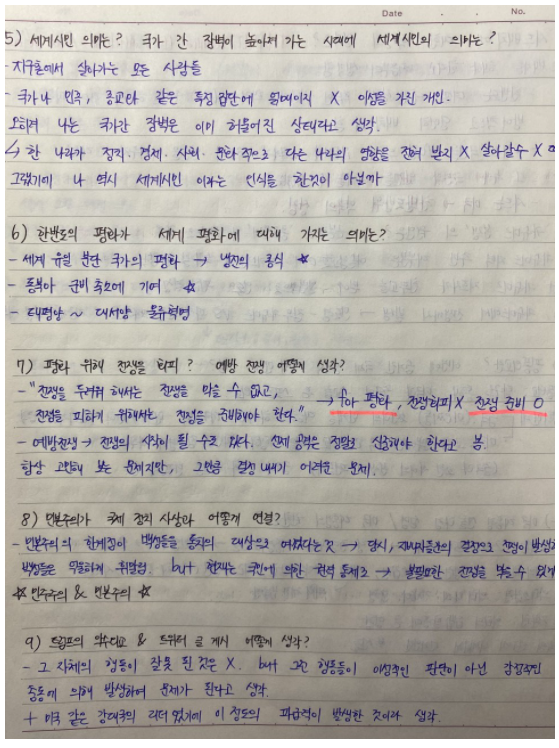 Date
No.
5) 세계시민 의미는? 국가 간 장벽이 높아져 가는 시대에 세계시민의 의미는?
- 지구촌에서 살아가는 모든 사람들
- 국가나 민족, 종교와 같은 특정 집단에 얽매이지 X 이성을 가진 개인.
오히려 나는 국가간 장벽은 이미 허물어진 상태라고 생각.
↳ 한 나라가 정치·경제·사회·문화적으로 다른 나라의 영향을 전혀 받지 X 살아갈수 X
그렇기에 나 역시 세계시민 이라는 인식을 한것이 아닐까
6) 한반도의 평화가 세계 평화에 대해 가지는 의미는?
- 세계 유일 분단 국가의 평화 → 냉전의 종식 ☆
- 동북아 군비 축소에 기여 ☆
- 태평양 ~ 대서양 물류혁명
7) 평화 위해 전쟁을 회피? 예방 전쟁 어떻게 생각?
- "전쟁을 두려워 해서는 전쟁을 막을 수 없고,
전쟁을 피하기 위해서는 전쟁을 준비해야 한다." → for 평화, 전쟁회피 X 전쟁 준비 O
- 예방전쟁 → 전쟁의 시작이 될 수도 있다. 선제 공격은 정말로 신중해야 한다고 봄
항상 고민해 보는 문제지만, 그만큼 결정 내리기 어려운 문제.
8) 민본주의가 국제 정치 사상과 어떻게 연결?
- 민본주의의 한계점이 백성들을 통치의 대상으로 여겼다는 것 → 당시, 지배자들간의 결정으로 전쟁이 발생하
백성들은 무고하게 휘말림. but 현재는 국민에 의한 권력 통제로 → 불필요한 전쟁을 막을 수 있게
☆ 민주주의 & 민본주의 ☆
9) 트럼프의 악수외교 & 트위터 글 게시 어떻게 생각?
- 그 자체의 행동이 잘못 된 것은 X. but 그런 행동들이 이성적인 판단이 아닌 감정적인
충동에 의해 발생하여 문제가 된다고 생각.
+ 미국 같은 강대국의 리더 였기에 이 정도의 파급력이 발생한 것이라 생각.